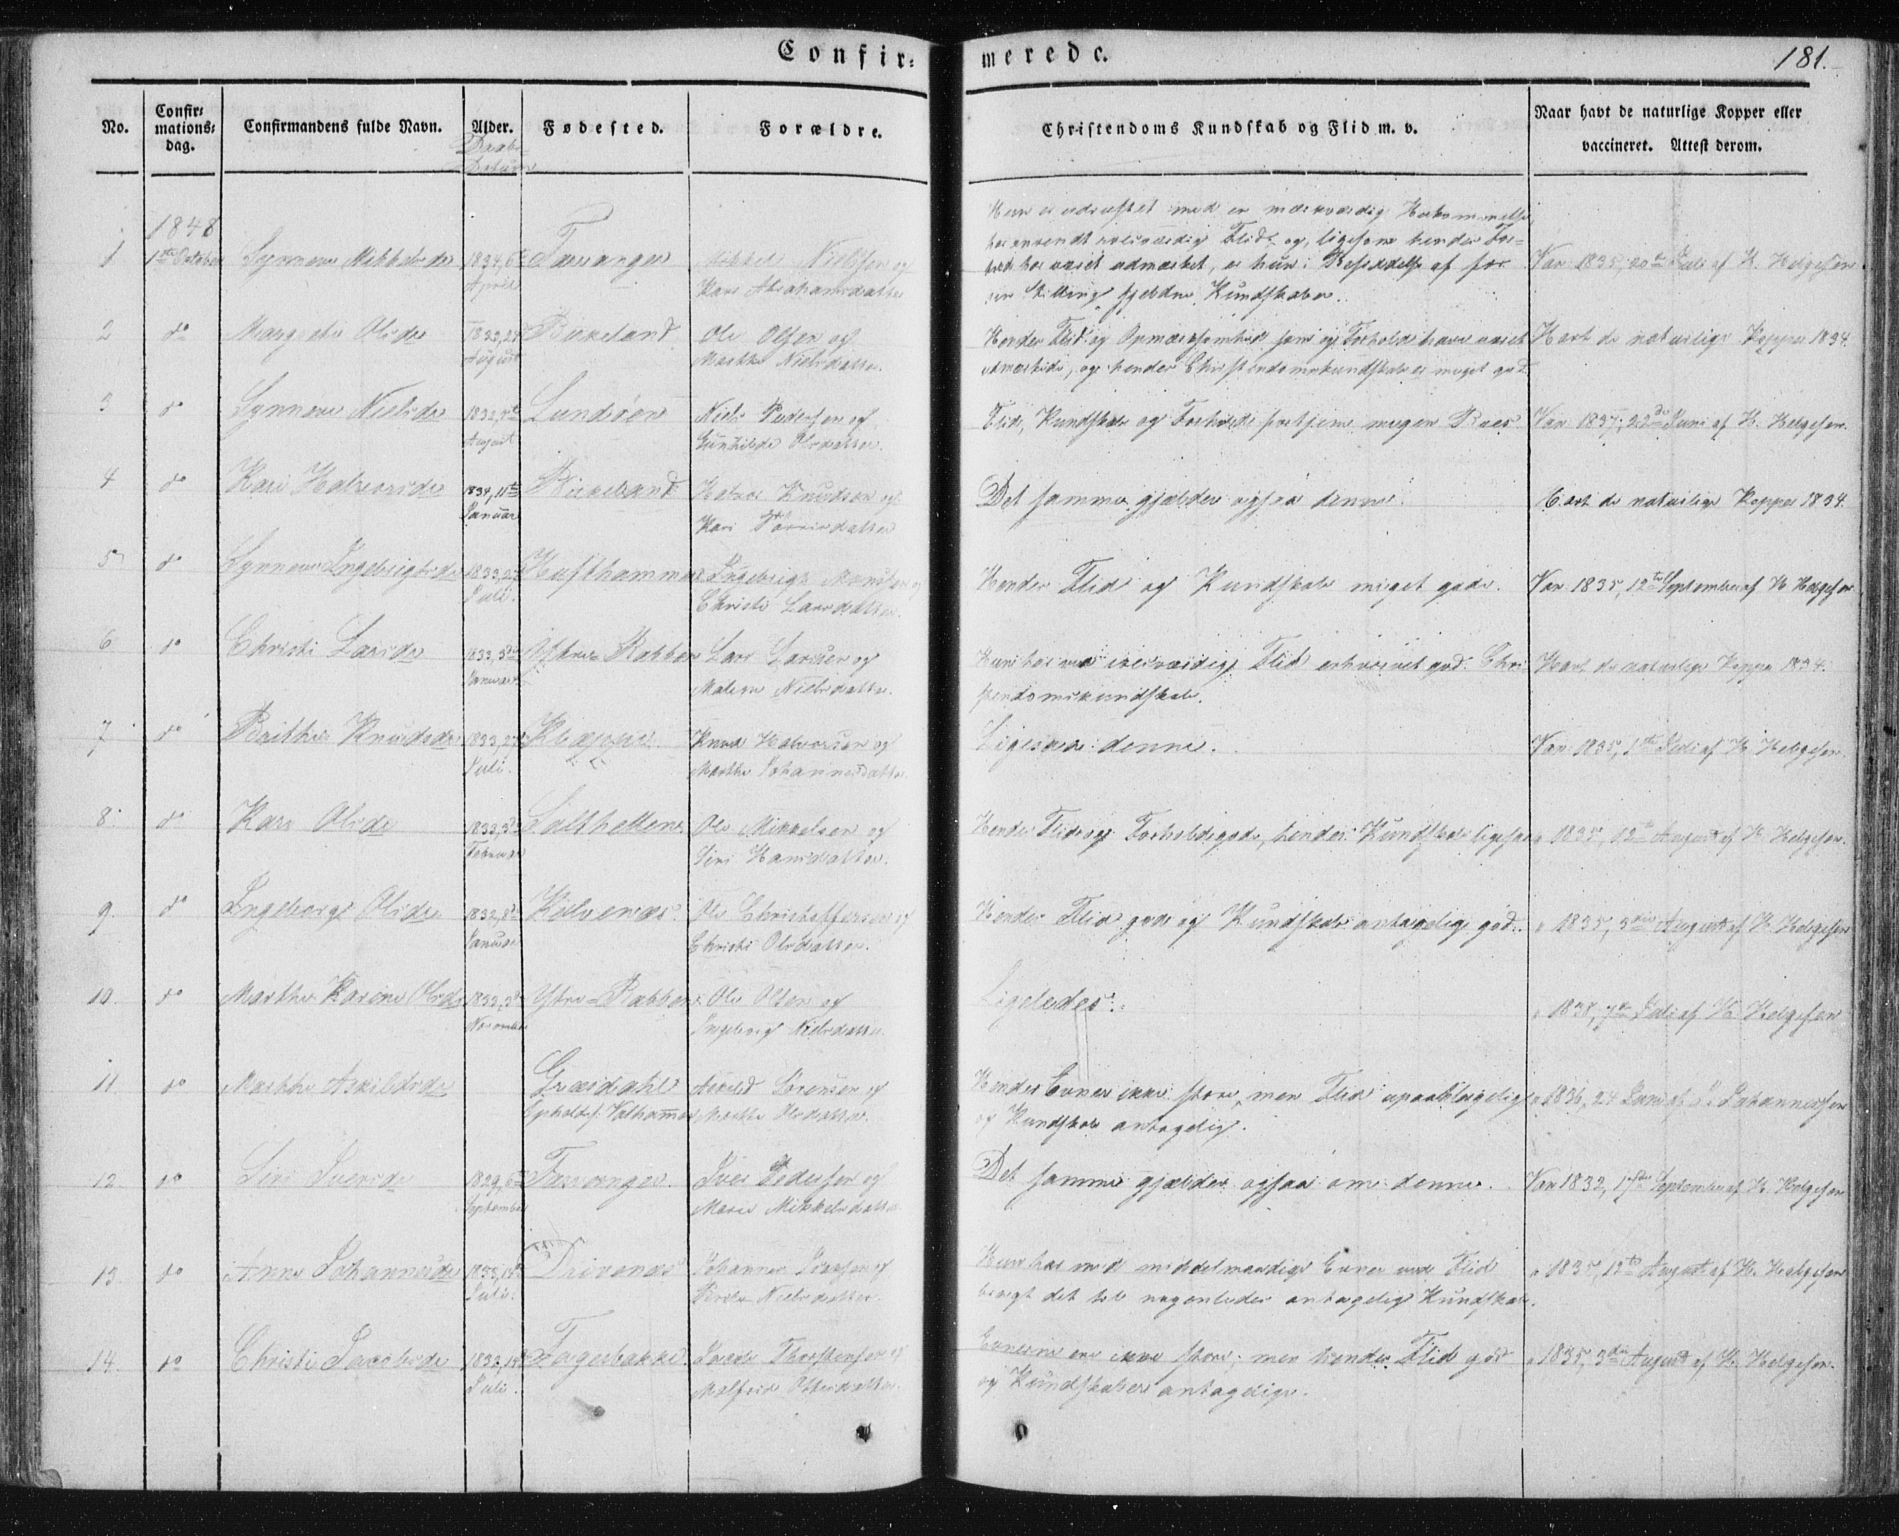 Confir= merede. 181.
No. Confir= mations= dag. Confirmandens fulde Navn. Alder. Fødested. Forældre. Christendoms Kundskab og Flid m. v. Naar havt de naturlige Kopper eller vaccineret. Attest derom.
Daabs Datum
1848
Hun er udrustet med en mærkværdig Hukommelse
har anvendt roesværdig Flid og, ligesom hendes For=
1 1ste October Synneve Mikkelsdr 1834, 6te Tausanger Mikkel Nielsen og
April Kari Abrahamsdatter
hold har været udmærket, er hun i Besiddelse af for
sin Stilling sjeldne Kundskaber.
Vac. 1835, 20de Juli af H. Helgesen
2 do Margrete Olsdr 1833, August Birkeland Ole Olsen og
Marthe Nielsdatter.
Hendes Flid og Opmærksomhed som og Forhold have været
udmærkede, og hendes Christendomskundskab er meget god.
Havt de naturlige Kopper 1834.
3 do Synneve Nielsdr 1832, August Lundøen Niels Pedersen og
Gunhilde Olsdatter.
Flid, Kundskab og Forhold fortjene megen Roes
Vac 1837, 22de Juni af H. Helgesen.
4 do Kari Halvorsdr 1834, 11te Januar Birkeland Halvor Knudsen og
Kari datter
Det samme gjælder ogsaa denne.
Havt de naturlige Kopper 1834.
5 do Synneve Ingebrigtsdr 1833, Juli. Hufthammer Ingebrigt Monsen og
Christi Larsdatter.
Hendes Flid og Kundskab meget gode.
Vac 1835, 12te September af H Helgesen
6 do Christi Larsdr 1833, Januar Yttre-Bakken Lars Larsen og
Malene Nielsdatter.
Hun har ved roesværdig Flid erhvervet god Chri=
stendomskundskab.
Havt de naturlige Kopper 1834.
7 do Brithe Knudsdr 1833, Juli. Kleppe Knud Halvorsen og
Marthe Johannesdatter
Ligesaa denne.
Vac 1835, 1ste Juli af H Helgesen.
8 do Kari Olsdr 1833, Februar Salthellen Ole Mikkelsen og
Siri Hansdatter.
Hendes Flid og Forhold gode, hendes Kundskab ligesaa
" 1835, 12te August af H Helgesen.
9. do Ingeborg Olsdr 1832, 8de Januar Kolvenæs Ole Christoffersen og
Christi Olsdatter.
Hendes Flid gode og Kundskab antagelig god.
" 1835, 3die August af H Helgesen
10. do Marthe Karine Olsdr 1832, November Yttre-Bakken Ole Olsen og
Ingeborg Nielsdatter
Ligeledes.
" 1838, 7de Juli af H. Helgesen
11 do Marthe Askildsdr Græsdahl Askild Sørensen og
Ophold i Marthe Olsdatter.
Hendes Evner ikke store, men Flid upaaklagelig
og Kundskab antagelig.
" 1836, 24 Juni af Johannessen
12. do Siri Iversdr 1829, 6te September Tausanger Iver Pedersen og
Mari Mikkelsdatter
Det samme gjælder ogsaa om denne.
Vac 1832, September af H. Helgesen
13. do Anne Johannesdr 1833, Juli. Drivenæs Johannes og
Nielsdatter.
Hun har med middelmaadige Evner ved Flid
bragt det til nogenledes antagelig Kundskab.
" 1835, 12te August af H. Helgesen
14. do Christi Jacobsdr 1832, Juli. Fagerbakke Jacob Thorstensen og
Malfrid datter
Evnerne ere ikke store, men hendes Flid god
og Kundskaber antagelige.
" 1835, 3die August af H. Helgesen.